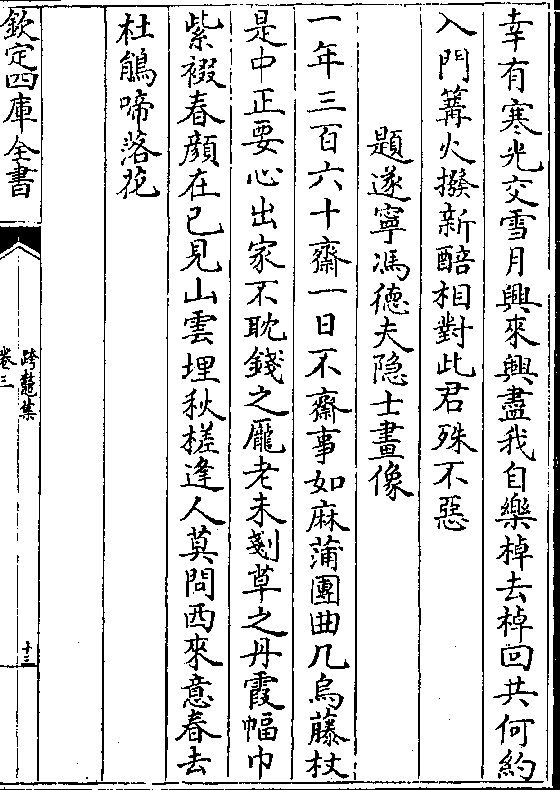 幸有寒光交雪月興來興盡我自樂棹去棹回共何約
入門篝火撥新醅相對此君殊不惡
題遂寧馮德夫隐士畫像
一年三百六十齋一日不齋事如麻蒲團曲几烏藤杖
是中正要心出家不耽錢之龎老未剗草之丹霞幅巾
紫裰春顔在已見山雲埋秋槎逢人莫問西來意春去
杜鵑啼落花
欽定四庫全書
跨鼇集
卷三
十三